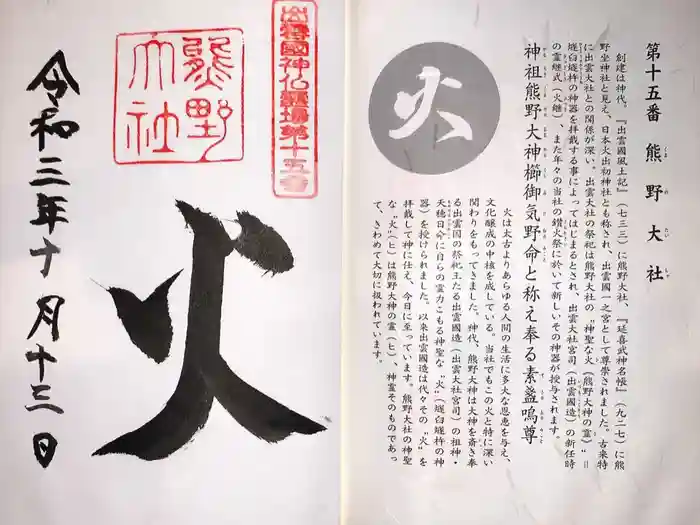 第十五番 熊野大社
創建は神代、『出雲國風土記』（七三三）に熊野大社、『延喜式神名帳』（九二七）に熊
野坐神社と見え、日本火出初神社とも称され、出雲國一之宮として尊崇されました。古来特
に出雲大社との関係が深い。出雲大社の祭祀は熊野大社の“神聖な火（熊野大神の霊）”＝
燧臼燧杵の神器を拝戴する事によってはじまるとされ、出雲大社宮司（出雲國造）の新任時
の霊継式（火継）、また年々の当社の鑽火祭に於いて新しいその神器が授与されます。
神祖熊野大神櫛御気野命と称え奉る素盞嗚尊
火は太古よりあらゆる人間の生活に多大な恩恵を与え、
文化醸成の中核を成している。当社でもこの火と特に深い
関わりをもってきました。神代、熊野大神は大神を斎き奉
る出雲国の祭祀王たる出雲國造（出雲大社宮司）の祖神・
天穂日命に自らの霊力こもる神聖な“火（燧臼燧杵の神
器）を授けられました。以来出雲國造は代々その“火”を
拝戴して神に仕え、今日に至っています。熊野大社の神聖
な“火”（ヒ）は熊野大神の霊（ヒ）、神霊そのものであっ
て、きわめて大切に扱われています。
火
出雲國神仏霊場第十五番
熊野
大社
火
令和三年十月十三日